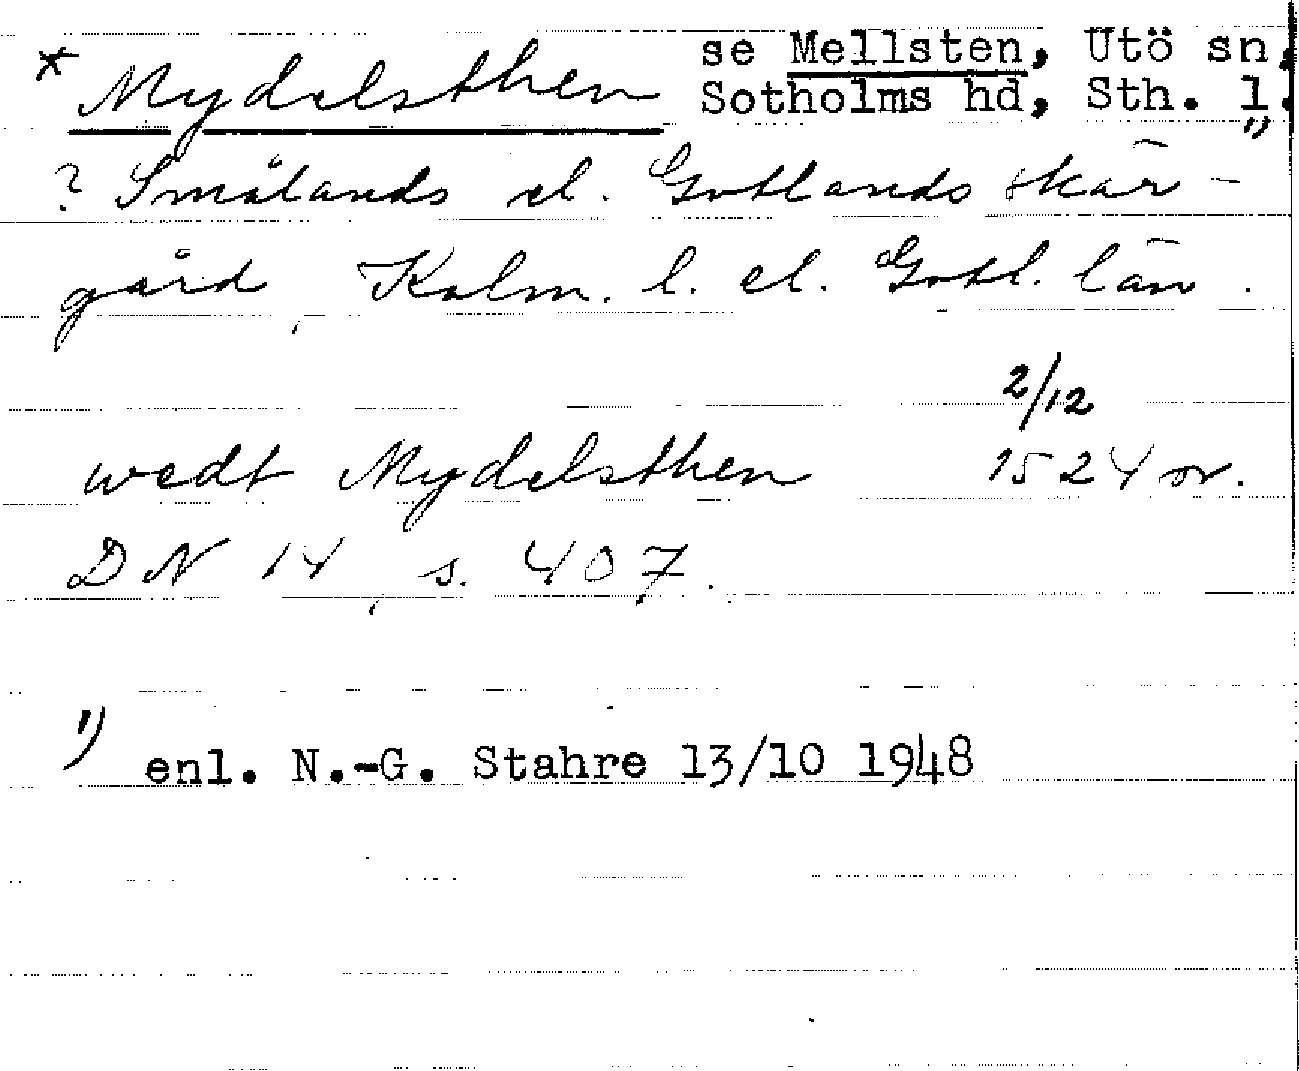 * Mydelsthen se Mellsten, Utö sn,
Sotholms hd, Sth. l. 1)
? Smålands el. Gotlands skär-
gård, Kalm. l. el. Gotl. län.
2/12
wedt Mydelsthen 1524 or.
DN 14, s. 407.
1) enl. N.-G. Stahre 13/10 1948